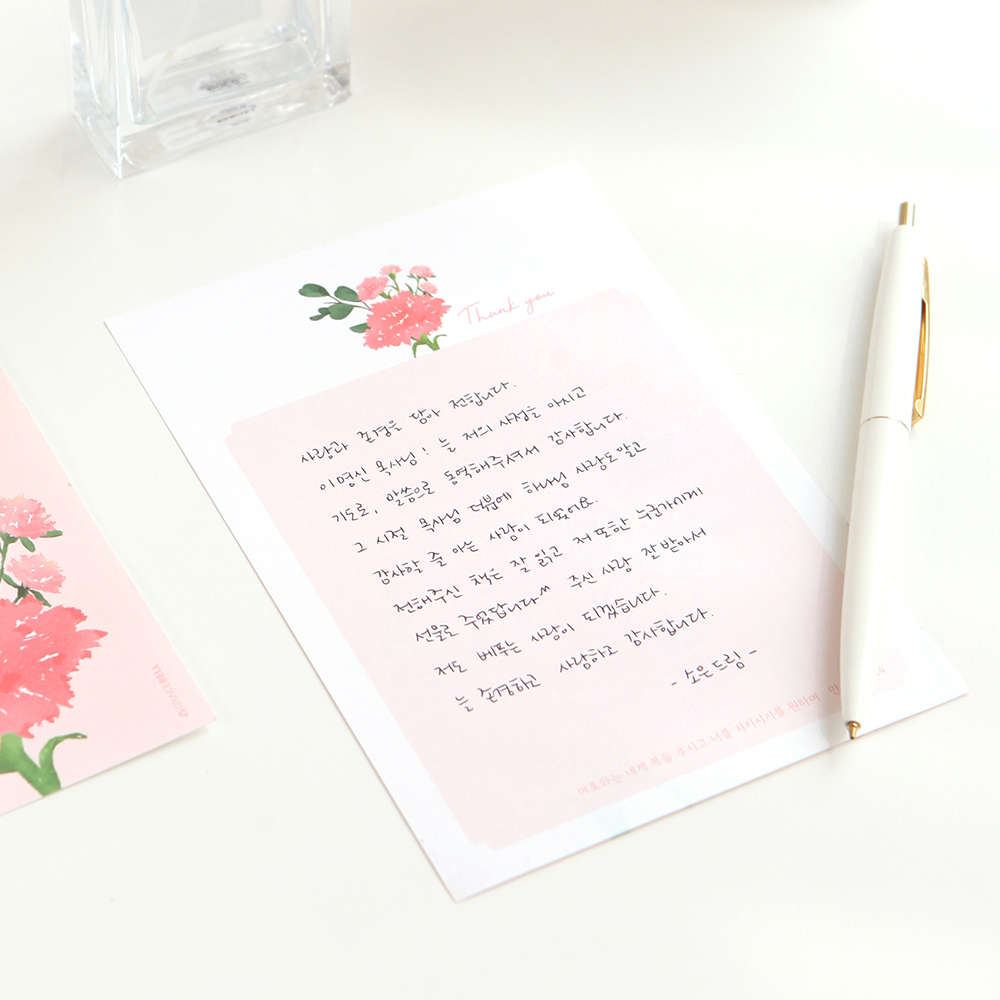 Thank you
사랑과 존경을 담아 전합니다.
이명신 목사님! 늘 저의 사정을 아시고
기도로, 말씀으로 동역해주셔서 감사합니다.
그 시절 목사님 덕분에 하나님 사랑도 알고
감사할 줄 아는 사람이 되었어요.
전해주신 책은 잘 읽고 저 또한 누군가에게
선물로 주었답니다^^ 주신 사랑 잘 받아서
저도 베푸는 사람이 되겠습니다.
늘 존경하고 사랑하고 감사합니다.
- 소은드림 -
여호와는 네게 복을 주시고 너를 지키시기를 원하며 민
GRACEBELL